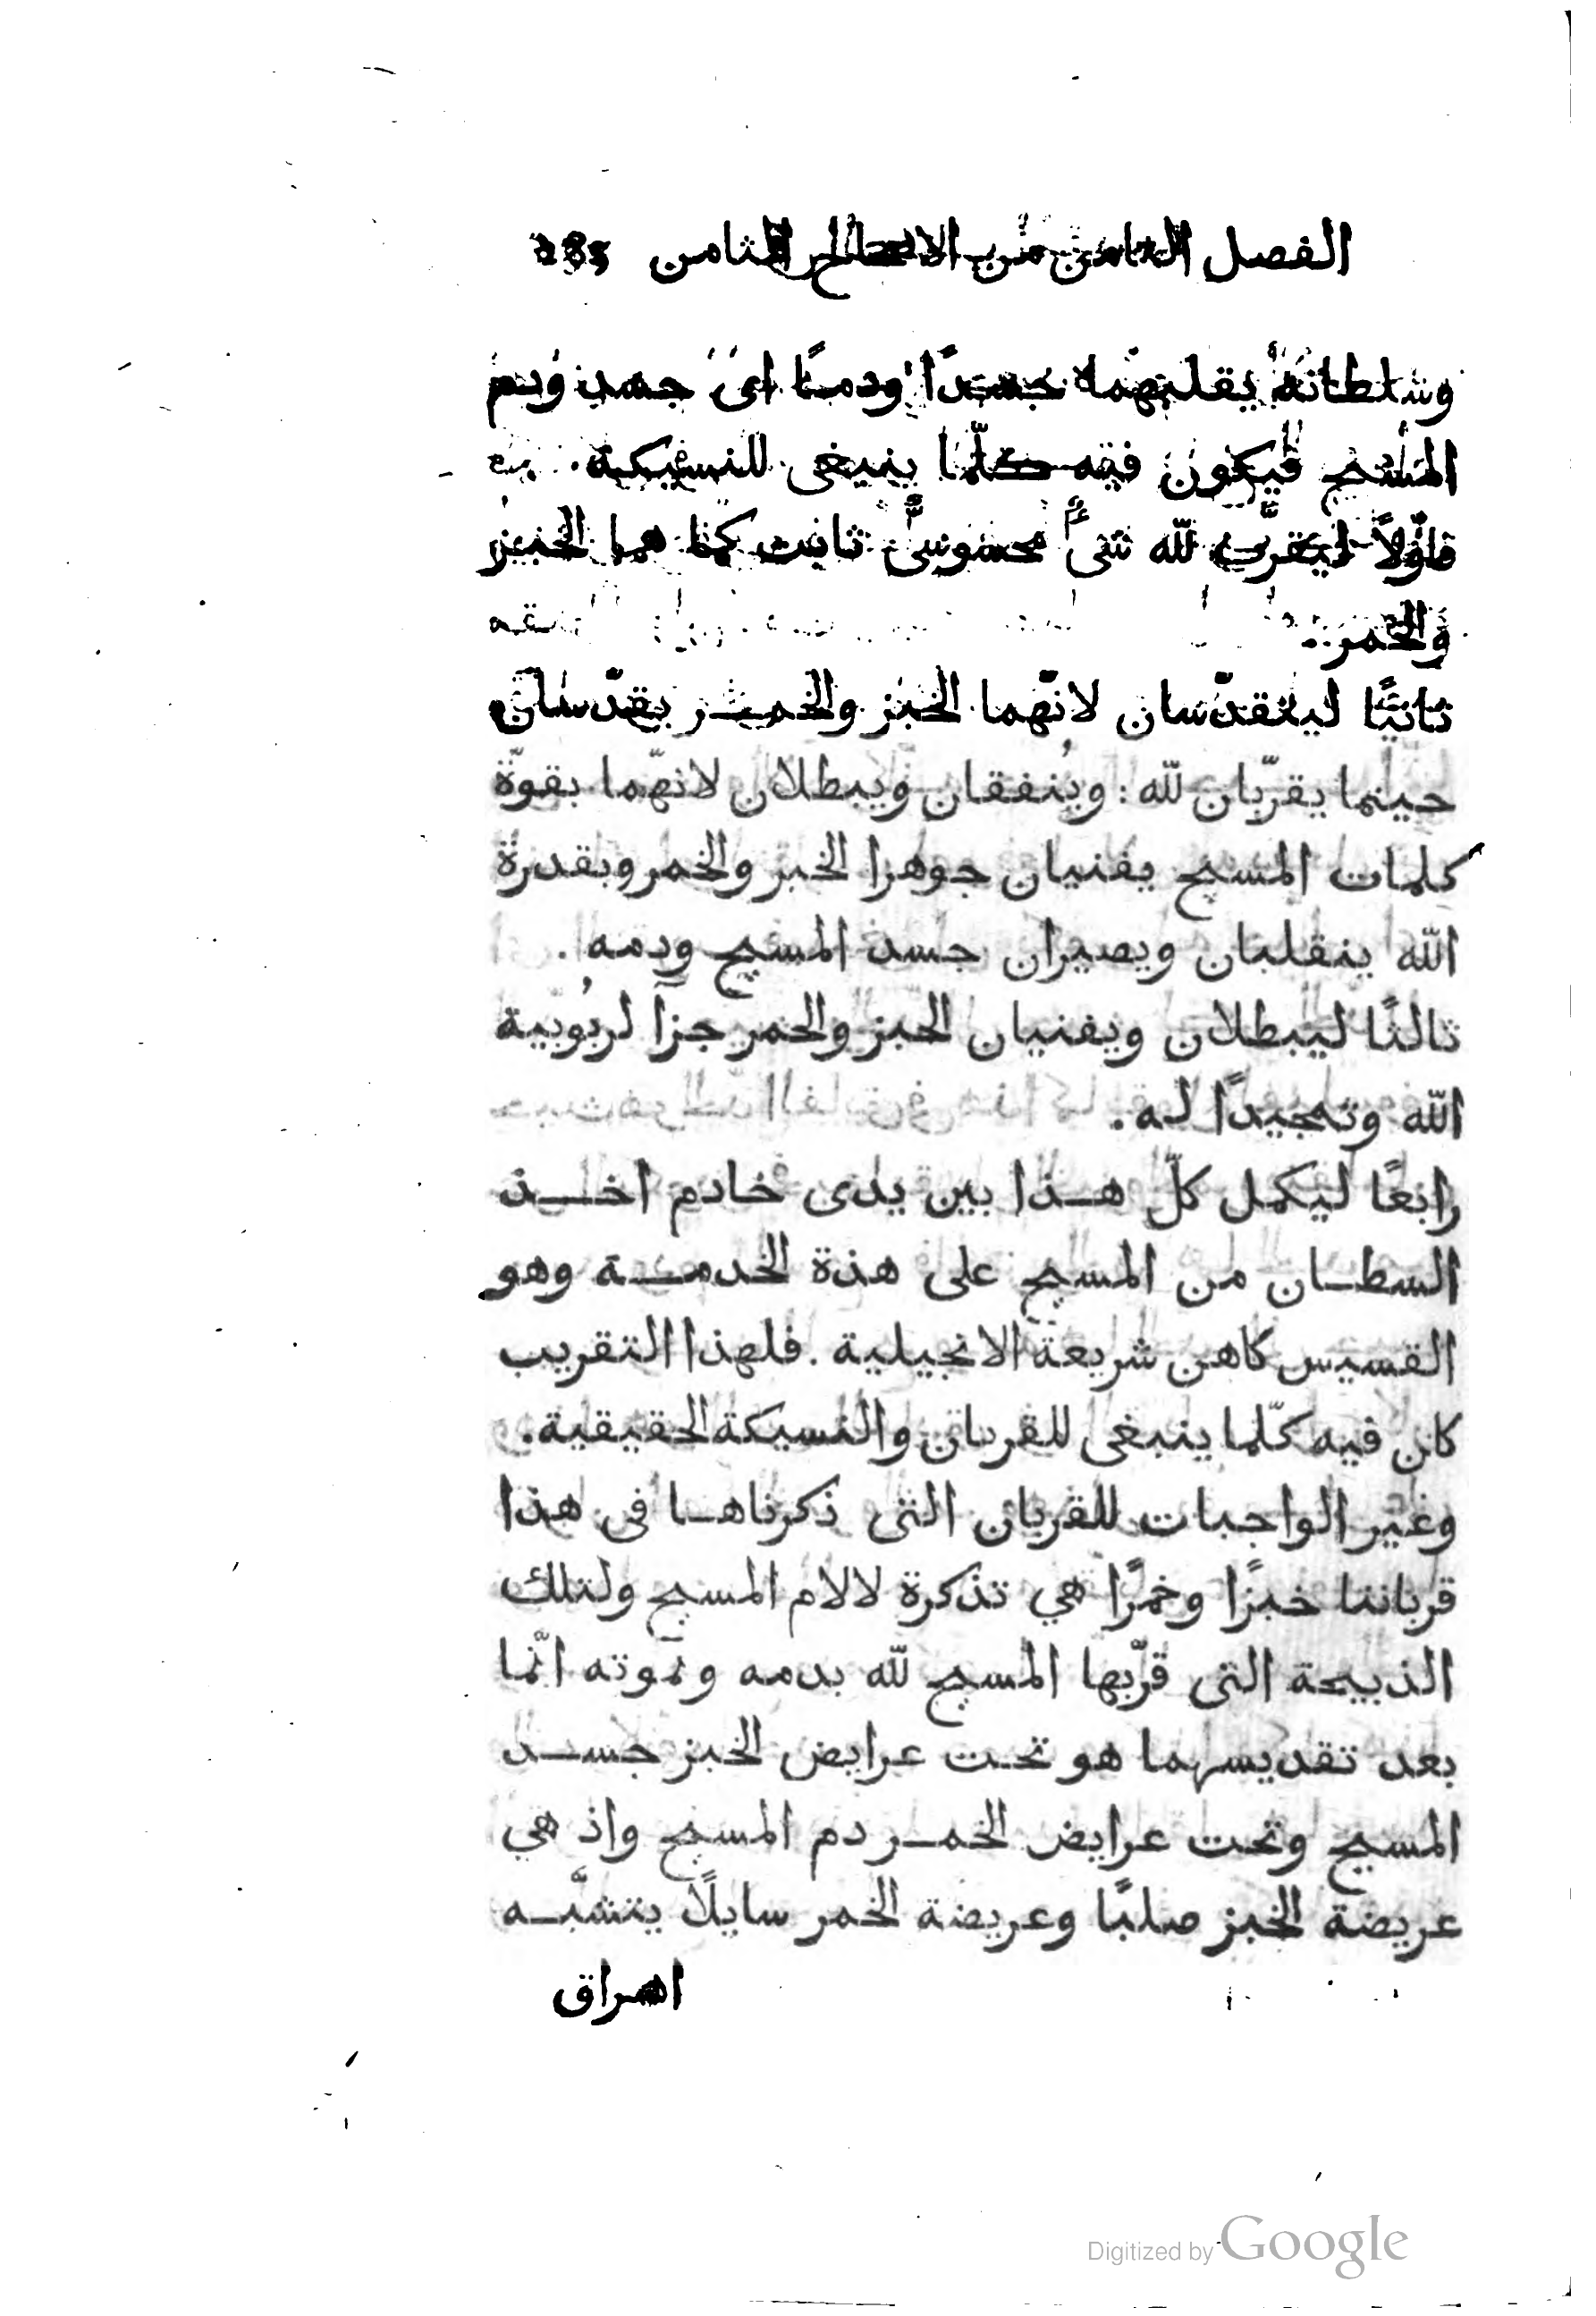 الفصل الثامن من الاصحاح الثامن 285
وسلطانه يقلبهما جسدًا ودمًا اى جسد ودم
المسيح فيكون فيه كلّما ينبغى للنسيكة.
فاوّلاً ليتقرّب للّه شىءٌ محسوسىٌّ ثابت كما هما الخبز
والخمر.
ثانيًا ليتقدّسان لانّهما الخبز والخمر يقدّسان
حينما يقرّبان للّه: ويُنفقان ويبطلان لانّهما بقوّة
كلمات المسيح يفنيان جوهرا الخبز والخمر وبقدرة
اللّه ينقلبان ويصيران جسد المسيح ودمه.
ثالثًا ليبطلان ويفنيان الخبز والخمر جزآ لربُوبية
اللّه وتمجيدًا له.
رابعًا ليكمل كلّ هذا بين يدى خادم اخذ
السطان من المسيح على هذة الخدمة وهو
القسيس كاهن شريعة الانجيلية. فلهذا التقريب
كان فيه كلّما ينبغى للقربان والنسيكة الحقيقية.
وغير الواجبات للقربان التى ذكرناها فى هذا
قرباننا خبزًا وخمرًا هي تذكرة لالام المسيح ولتلك
الذبيحة التى قرّبها المسيح للّه بدمه وبموته انّما
بعد تقديسهما هو تحت عرايض الخبز جسد
المسيح وتحت عرايض الخمر دم المسيح واذ هي
عريضة الخبز صلبًا وعريضة الخمر سايلًا يتشبّه
اهراق
Digitized by Google